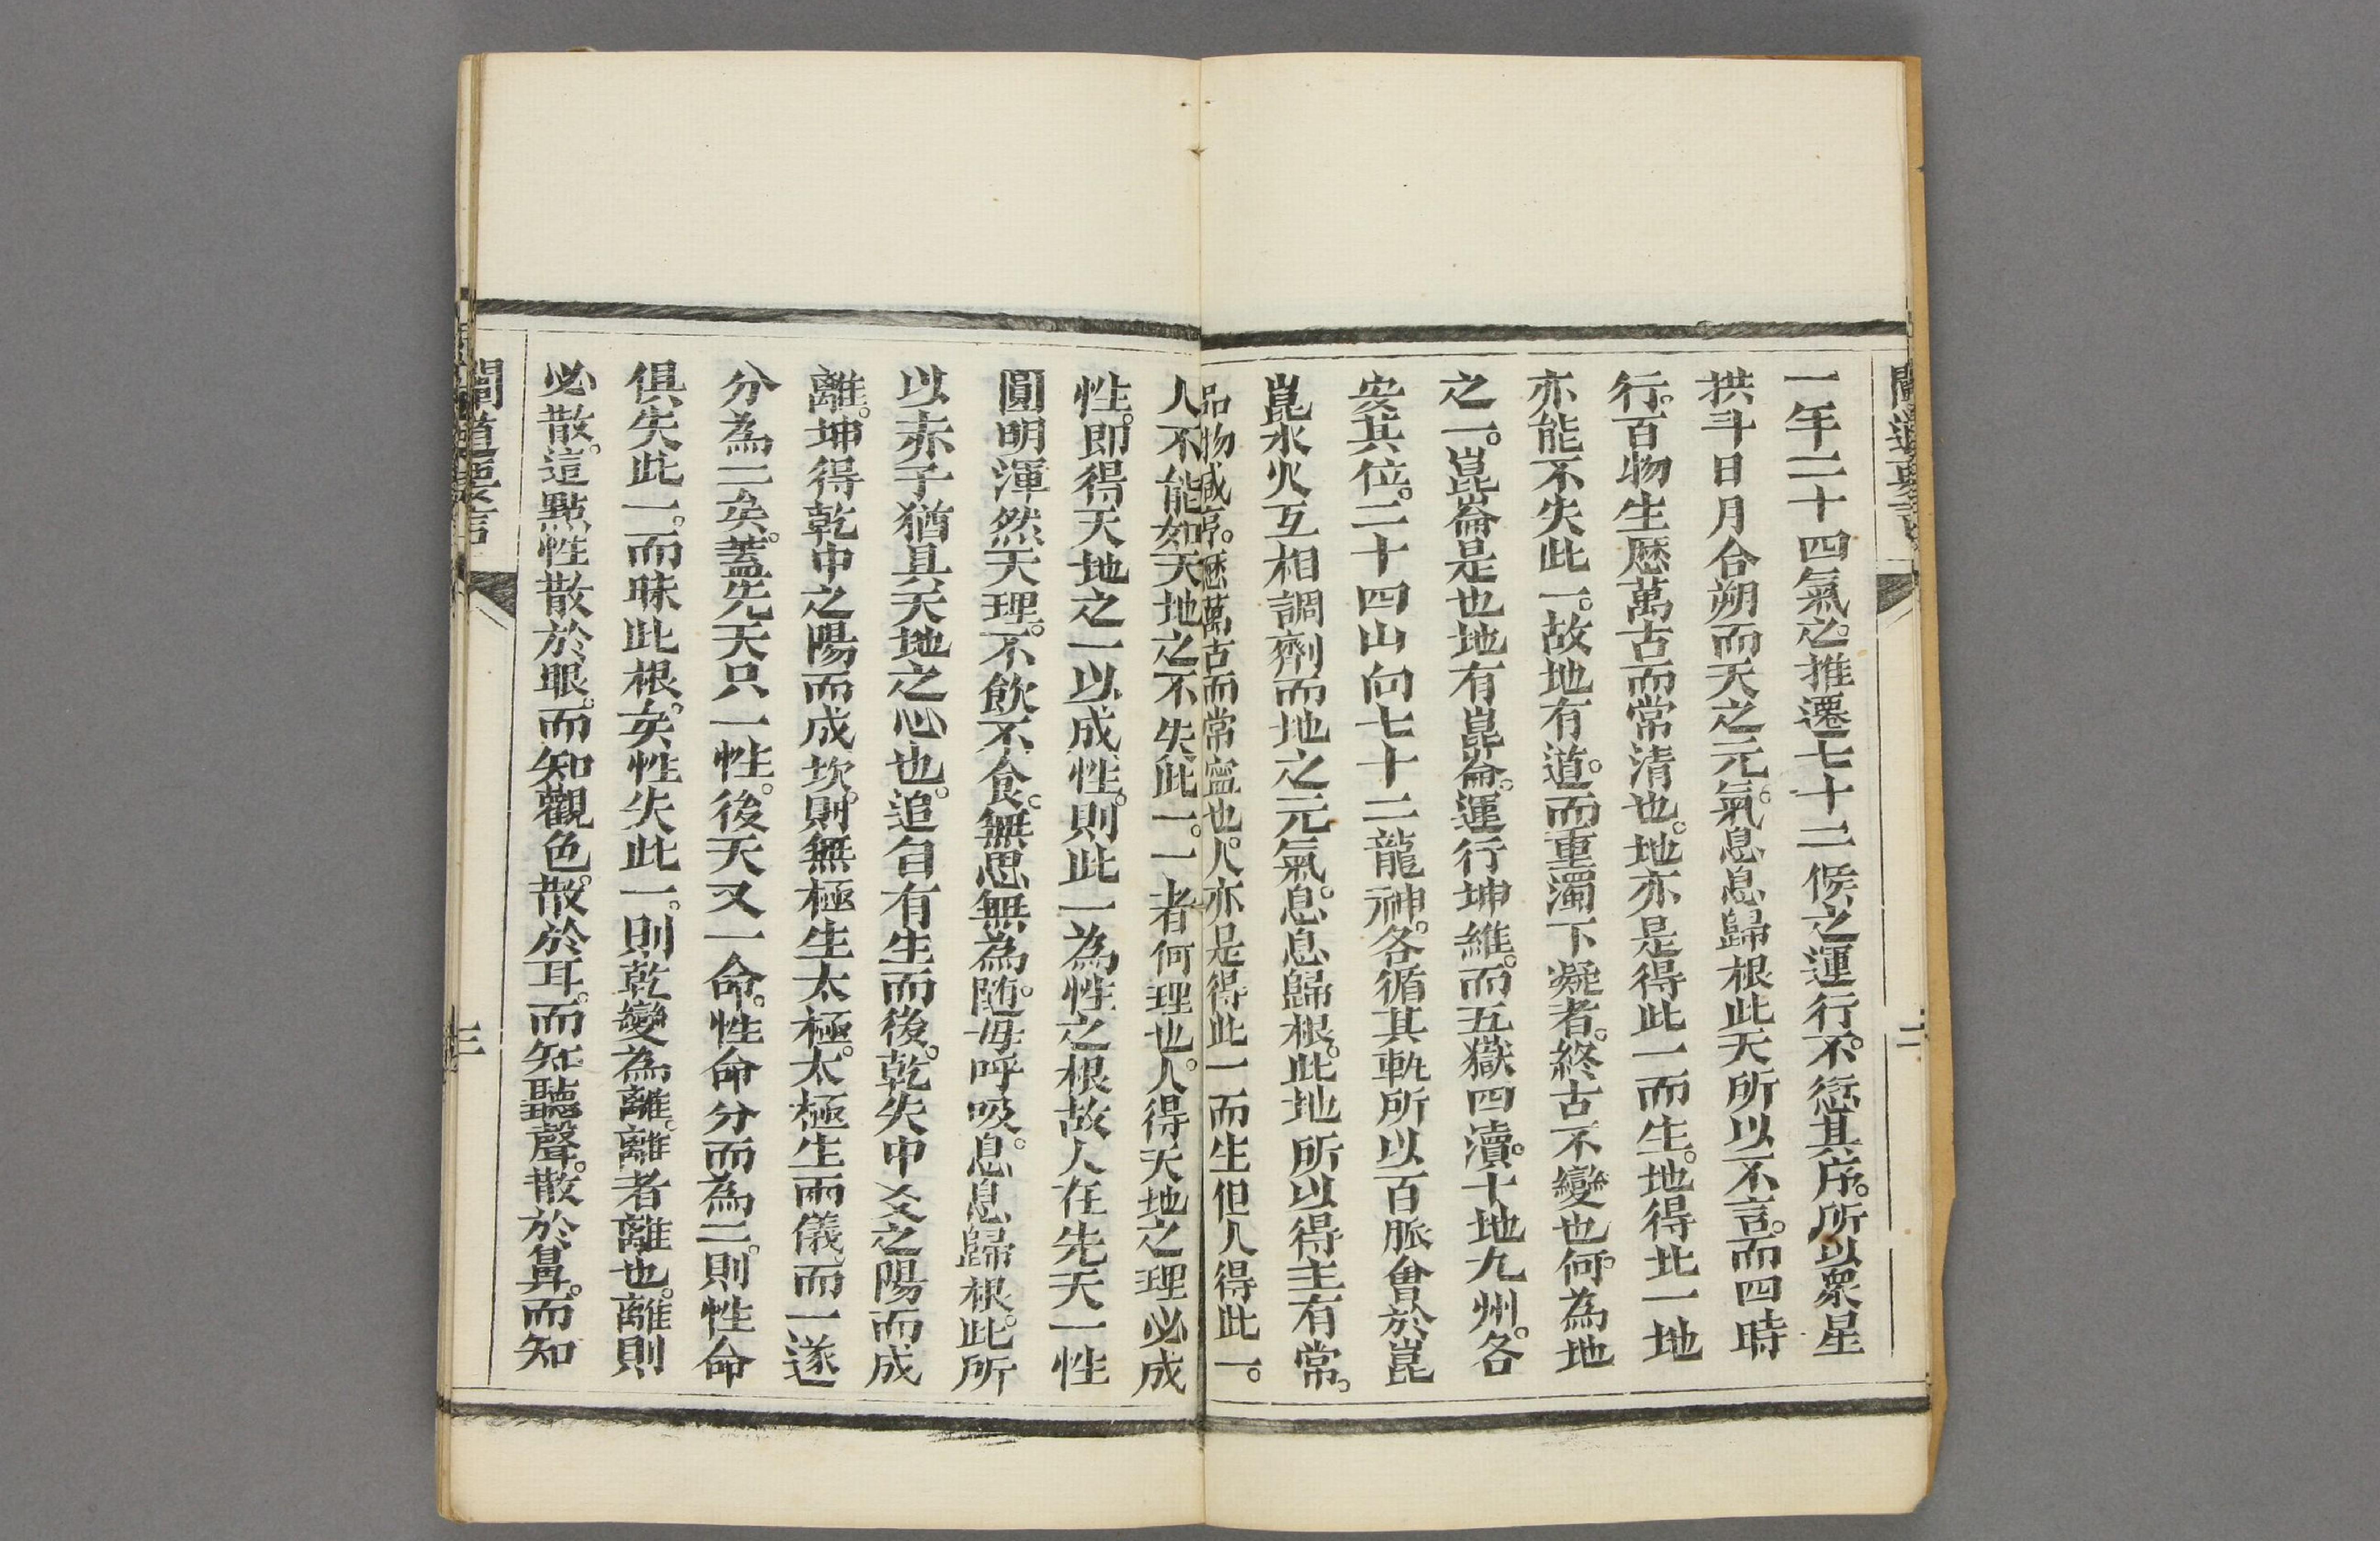 一年二十四氣之推遷七十二候之運行不愆其序。所以衆星
拱斗日月合朔而天之元氣。息息歸根此天所以不言。而四時
行。百物生歷萬古而常清也。地亦是得此一而生。地得此一地
亦能不失此一。故地有道。而重濁下凝者。終古不變也。何為地
之一。崑崙是也地有崑崙。運行坤維。而五嶽四瀆。十地九州。各
安其位。二十四山向七十二龍神。各循其軌所以百脈會於崑
崑水火互相調劑而地之元氣。息息歸根。此地所以得主有常。
品物咸亨。歷萬古而常寧也。人亦是得此一而生但人得此一。
人不能如天地之不失此一。一者何理也。人得天地之理必成
性。即得天地之一以成性。則此一為性之根故人在先天一性
圓明渾然天理。不飲不食。無思無為。随毋呼吸。息息歸根。此所
以赤子猶具天地之心也。追自有生而後。乾失中爻之陽而成
離。坤得乾中之陽而成坎。則無極生太極。太極生兩儀。而一遂
分為二矣。蓋先天只一性。後天又一命。性命分而為二。則性命
俱失此一。而昧此根。矣性失此一。則乾變為離。離者離也。離則
必散。這點性散於眼。而知觀色。散於耳。而知聽聲。散於鼻。而知
闡道要言
三